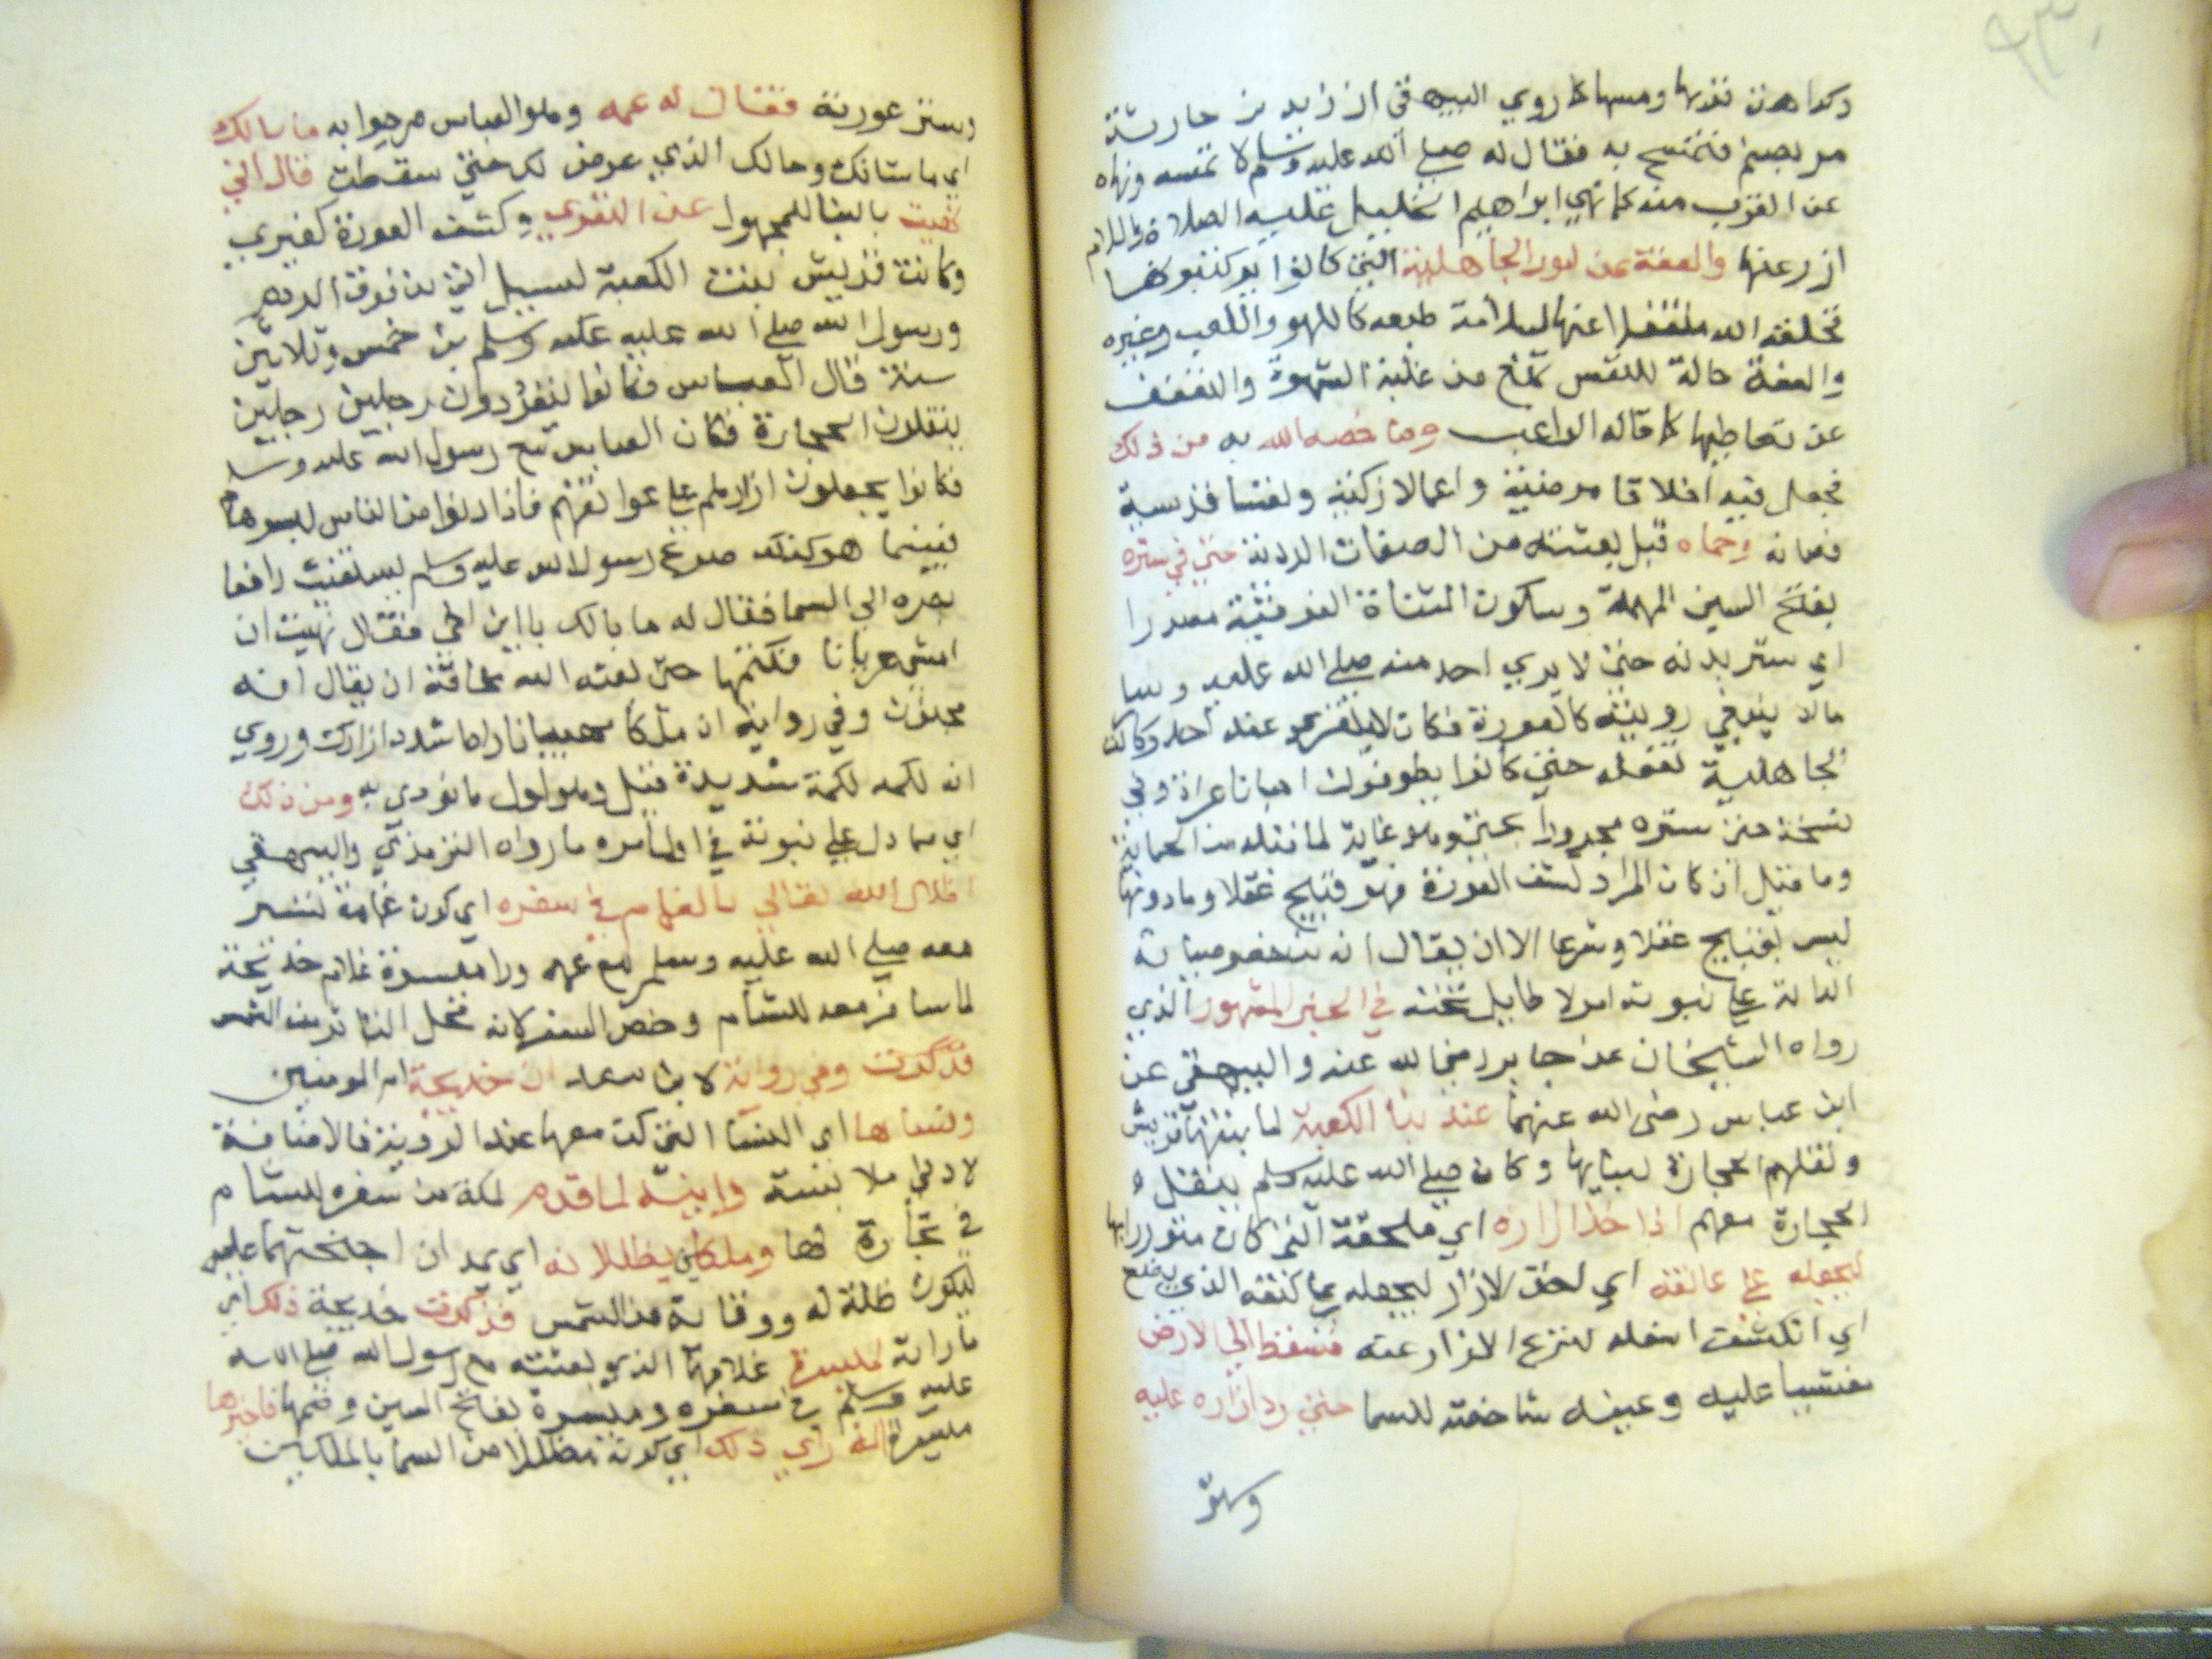 ٩٣٠
وكراهته تقربها ومسها كما روي البيهقي ان زيد بن حارثة
مر بصنم فتمسح به فقال له صلى الله عليه وسلم لا تمسه ونهاه
عن القرب منه كما نهي ابراهيم الخليل عليه الصلاة والسلام
ازر عنها والعفة عن امور الجاهلية التي كانوا يرتكبونها
فخلقه الله منفصلا عنها لسلامة طبعه كاللهو واللعب وغيره
والعفة حالة للنفس تمنع من غلبة الشهوة والتعفف
عن تعاطيها كما قاله الراغب وما خصه الله به من ذلك
فجعل فيه اخلاقا مرضية واعمالا زكية ونفسا قدسية
فصانه وحماه قبل بعثته من الصفات الردية حتي في ستره
بفتح السين المهملة وسكون المثناة الفوقية مصدرا
اي ستر بدنه حتي لا يري احد منه صلى الله عليه وسلم
مالا ينبغي رويته كالعورة فكان لا يتعري عند احد وكانت
الجاهلية تفعله حتي كانوا يطوفون احيانا عراة وفي
نسخة حتي ستره مجرورا بحتي وهو غاية لما قبله من الحماية
وما قيل ان كان المراد كشف العورة فهو قبيح عقلا وما دونها
ليس بقبيح عقلا وشرعا الا ان يقال انه من خصوصياته
الدالة علي نبوته امر لا طايل تحته في الخبر المشهور الذي
رواه الشيخان عن جابر رضي الله عنه والبيهقي عن
ابن عباس رضي الله عنهما عند بنا الكعبة لما بنتها قريش
ونقلهم الحجارة لبنايها وكان صلى الله عليه وسلم ينقل
الحجارة معهم اذ اخذ ازاره اي ملحفته التي كان متزرا بها
ليجعله علي عاتقه اي اخذ الازار ليجعله علي كتفه الذي يضع
اي انكشفت اسفله لنزع الازار عنه فسقط الي الارض
مغشيا عليه وعينه شاخصة للسما حتي رد ازاره عليه
وستر
وستر عورته فقال له عمه وهو العباس مرحوابه ما بالك
اي ما شانك وحالك الذي عرض لك حتي سقطت قال اني
نهيت بالبنا للمجهول عن التعري وكشف العورة كغيري
وكانت قريش بنت الكعبة لسيل اتي من فوق الردم
ورسول الله صلى الله عليه عليه وسلم بن خمس وثلاثين
سنة قال العباس فكانوا ينفردون رجلين رجلين
ينقلون الحجارة فكان العباس مع رسول الله عليه وسلم
فكانوا يجعلون ازارهم علي عواتقهم فاذا دنوا من الناس لبسوها
فبينما هو كذلك صرع رسول الله عليه وسلم رافعا
بصره الي السما فقال له ما بالك يا ابن اخي فقال نهيت ان
امشي عريانا فكتمتها حتي بعثه الله مخافة ان يقال انه
مجنون وفي رواية ان ملكا شدد ازارك وروي
انه لكمه لكمة شديدة قيل وهو اول ما نودي به ومن ذلك
اي مما دل علي نبوته في اول امره ما رواه الترمذي والبيهقي
اظلال الله تعالي له بالغمام في سفره اي كون غمامة تسير
معه صلى الله عليه وسلم مع عمه ورا ميسرة غلام خديجة
لما سافر معه للشام وخص السفر لانه محل التاذي من الشمس
فذكرت وفي رواية لابن سعد ان خديجة ام المومنين
ونساها اي النسا التي كن معها عند الروية فالاضافة
لادني ملابسة راينه لما قدم لمكة من سفره للشام
في تجارة لها وملكان يظلانه اي يمدان اجنحتهما عليه
ليكون ظلة له ووقاية من الشمس فذكرت خديجة ذلك اي
ما راته لميسرة غلامها الذي بعثته مع رسول الله صلى الله
عليه وسلم في سفره وميسرة بفتح السين وضمها فاخبرها
ميسرة انه راي ذلك اي كونه مظللا من السما بالملكين